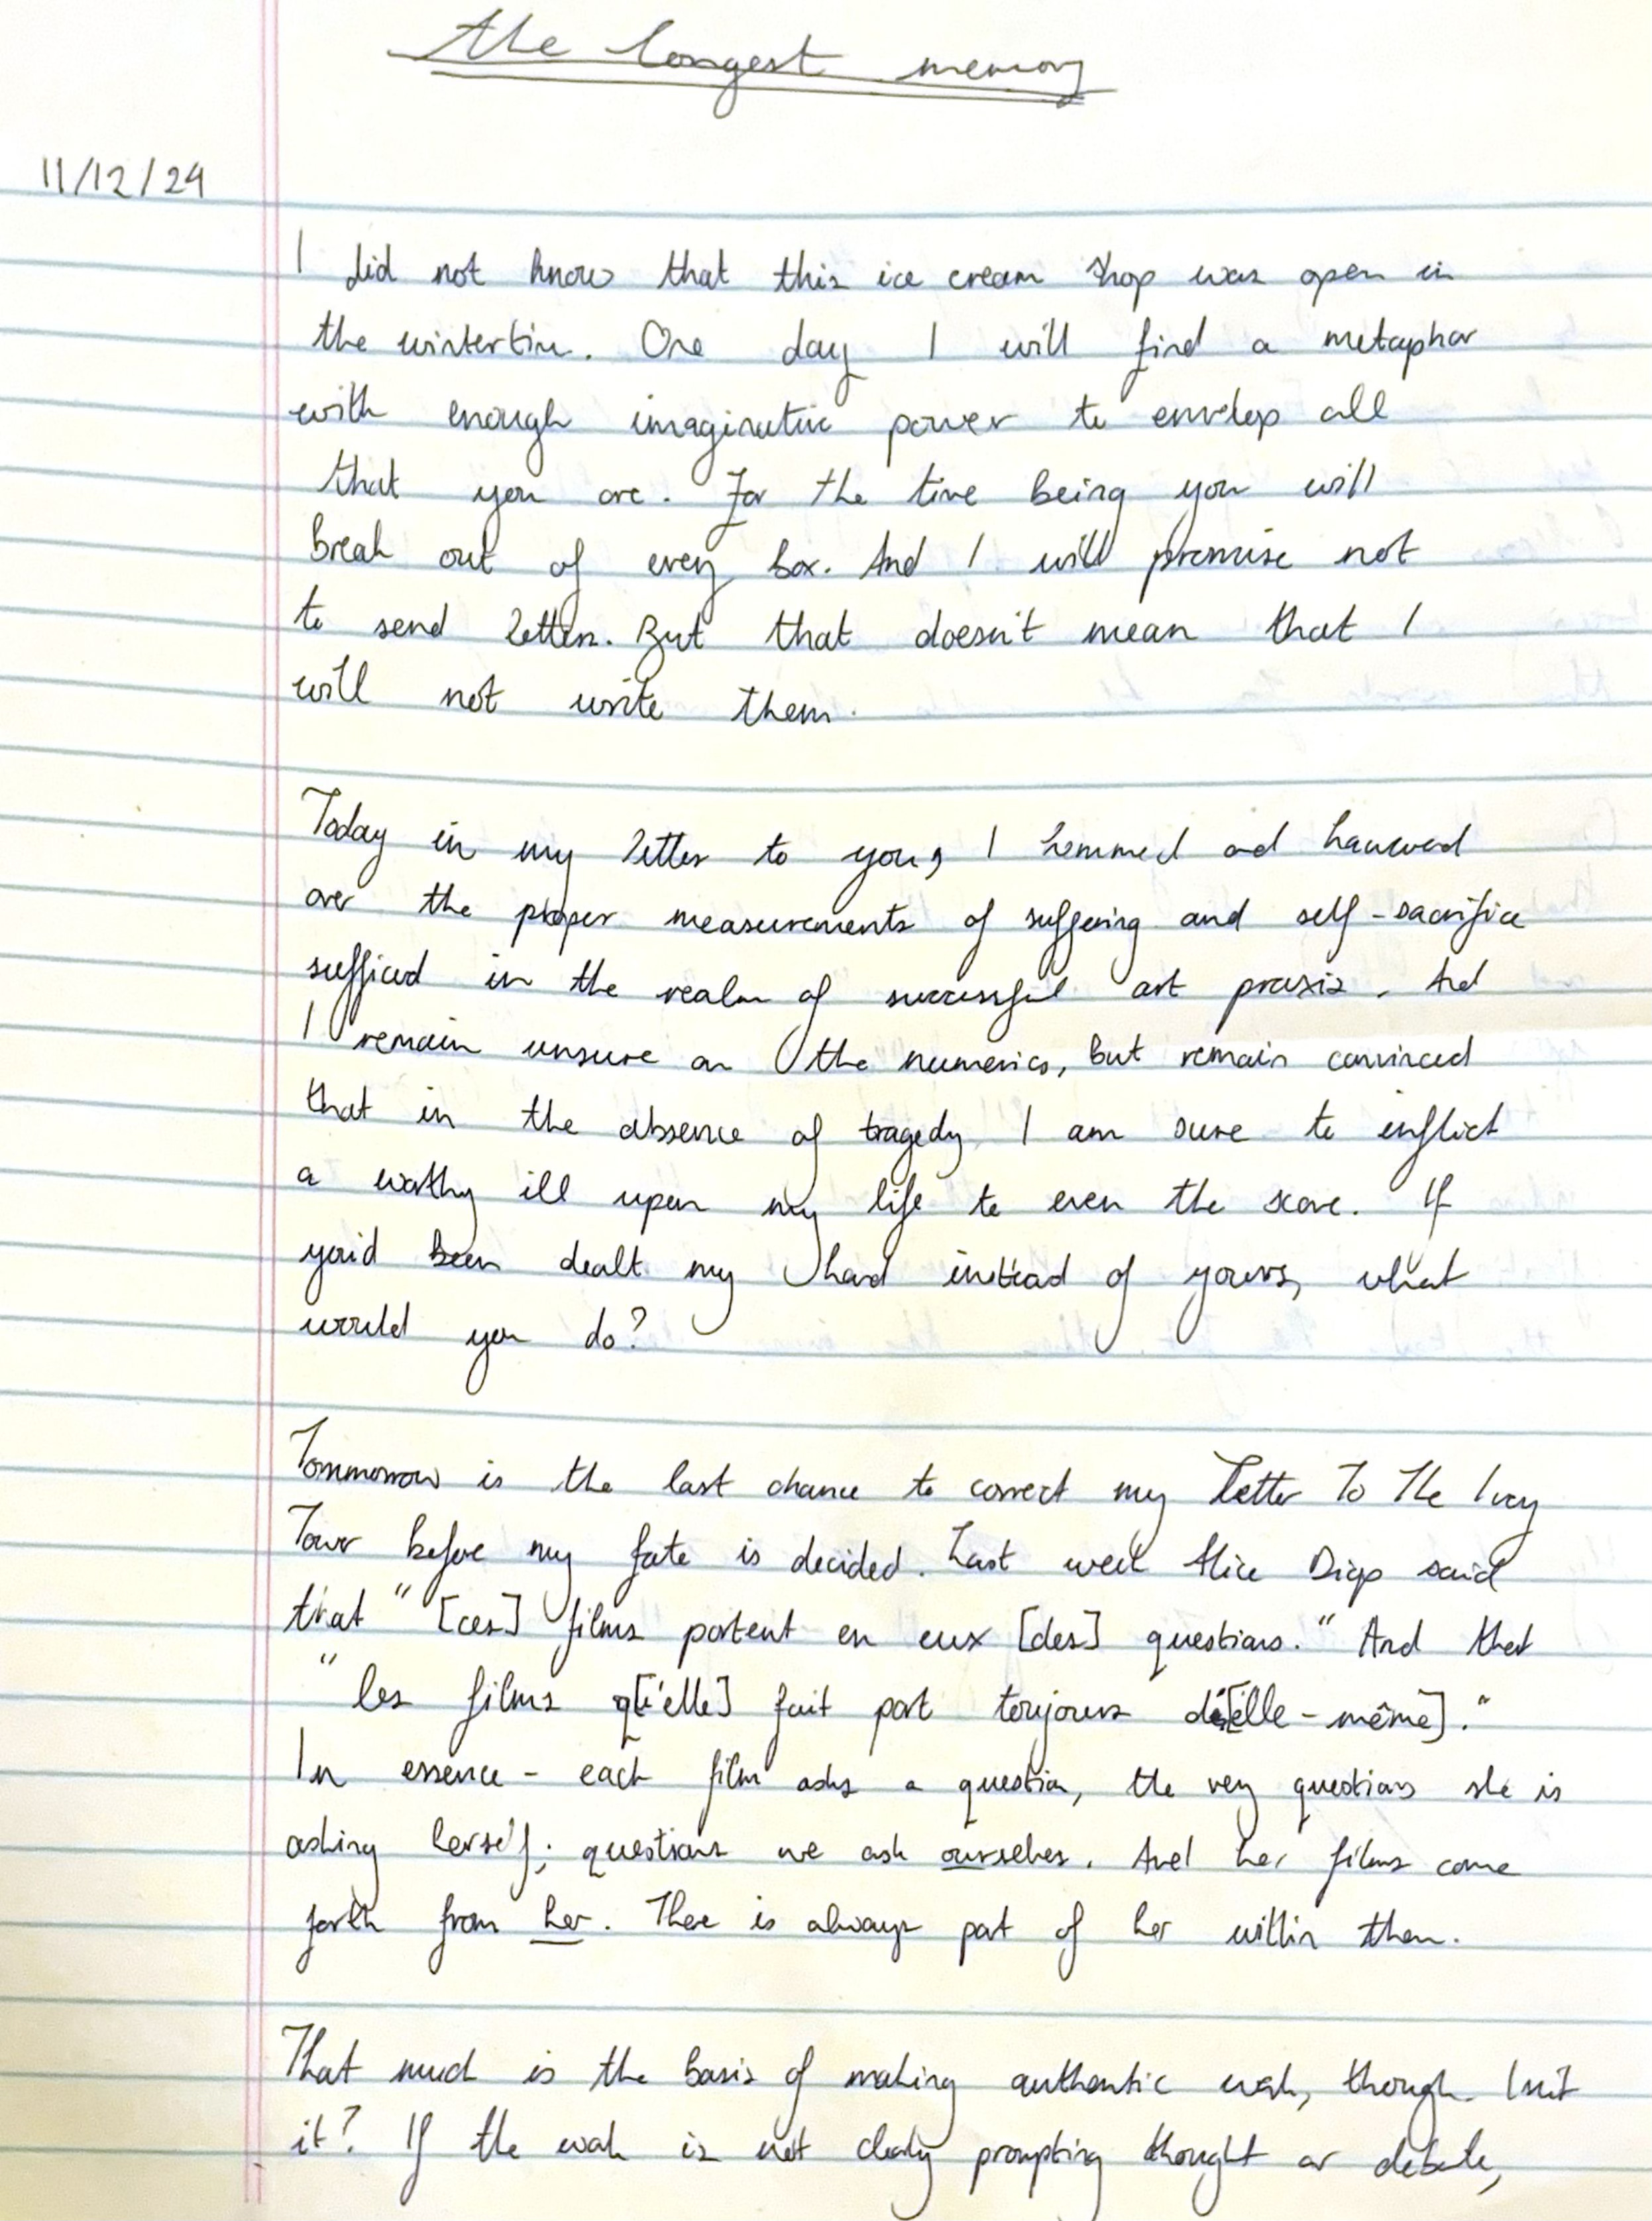 the longest memory
11/12/24
I did not know that this ice cream shop was open in
the wintertime. One day I will find a metaphor
with enough imaginative power to envelop all
that you are. For the time being you will
break out of every box. And I will promise not
to send letters. But that doesn't mean that I
will not write them.
Today in my letter to you, I hemmed and hawwed
over the proper measurements of suffering and self-sacrifice
sufficed in the realm of successful art praxis. And
I remain unsure on the numerics, but remain convinced
that in the absence of tragedy I am sure to inflict
a worthy ill upon my life to even the score. If
you'd been dealt my hand instead of yours, what
would you do?
Tommorrow is the last chance to correct my Letter To The Ivory
Tower before my fate is decided. Last week Alice Diop said
that "[ces] films portent en eux [des] questions." And that
"les films q[u'elle] fait part toujours d'[elle-même]."
In essence - each film asks a question, the very questions she is
asking herself; questions we ask ourselves. And her films come
forth from her. There is always part of her within them.
That much is the basis of making authentic work, though. Isn't
it? If the work is not clearly prompting thought or debate,